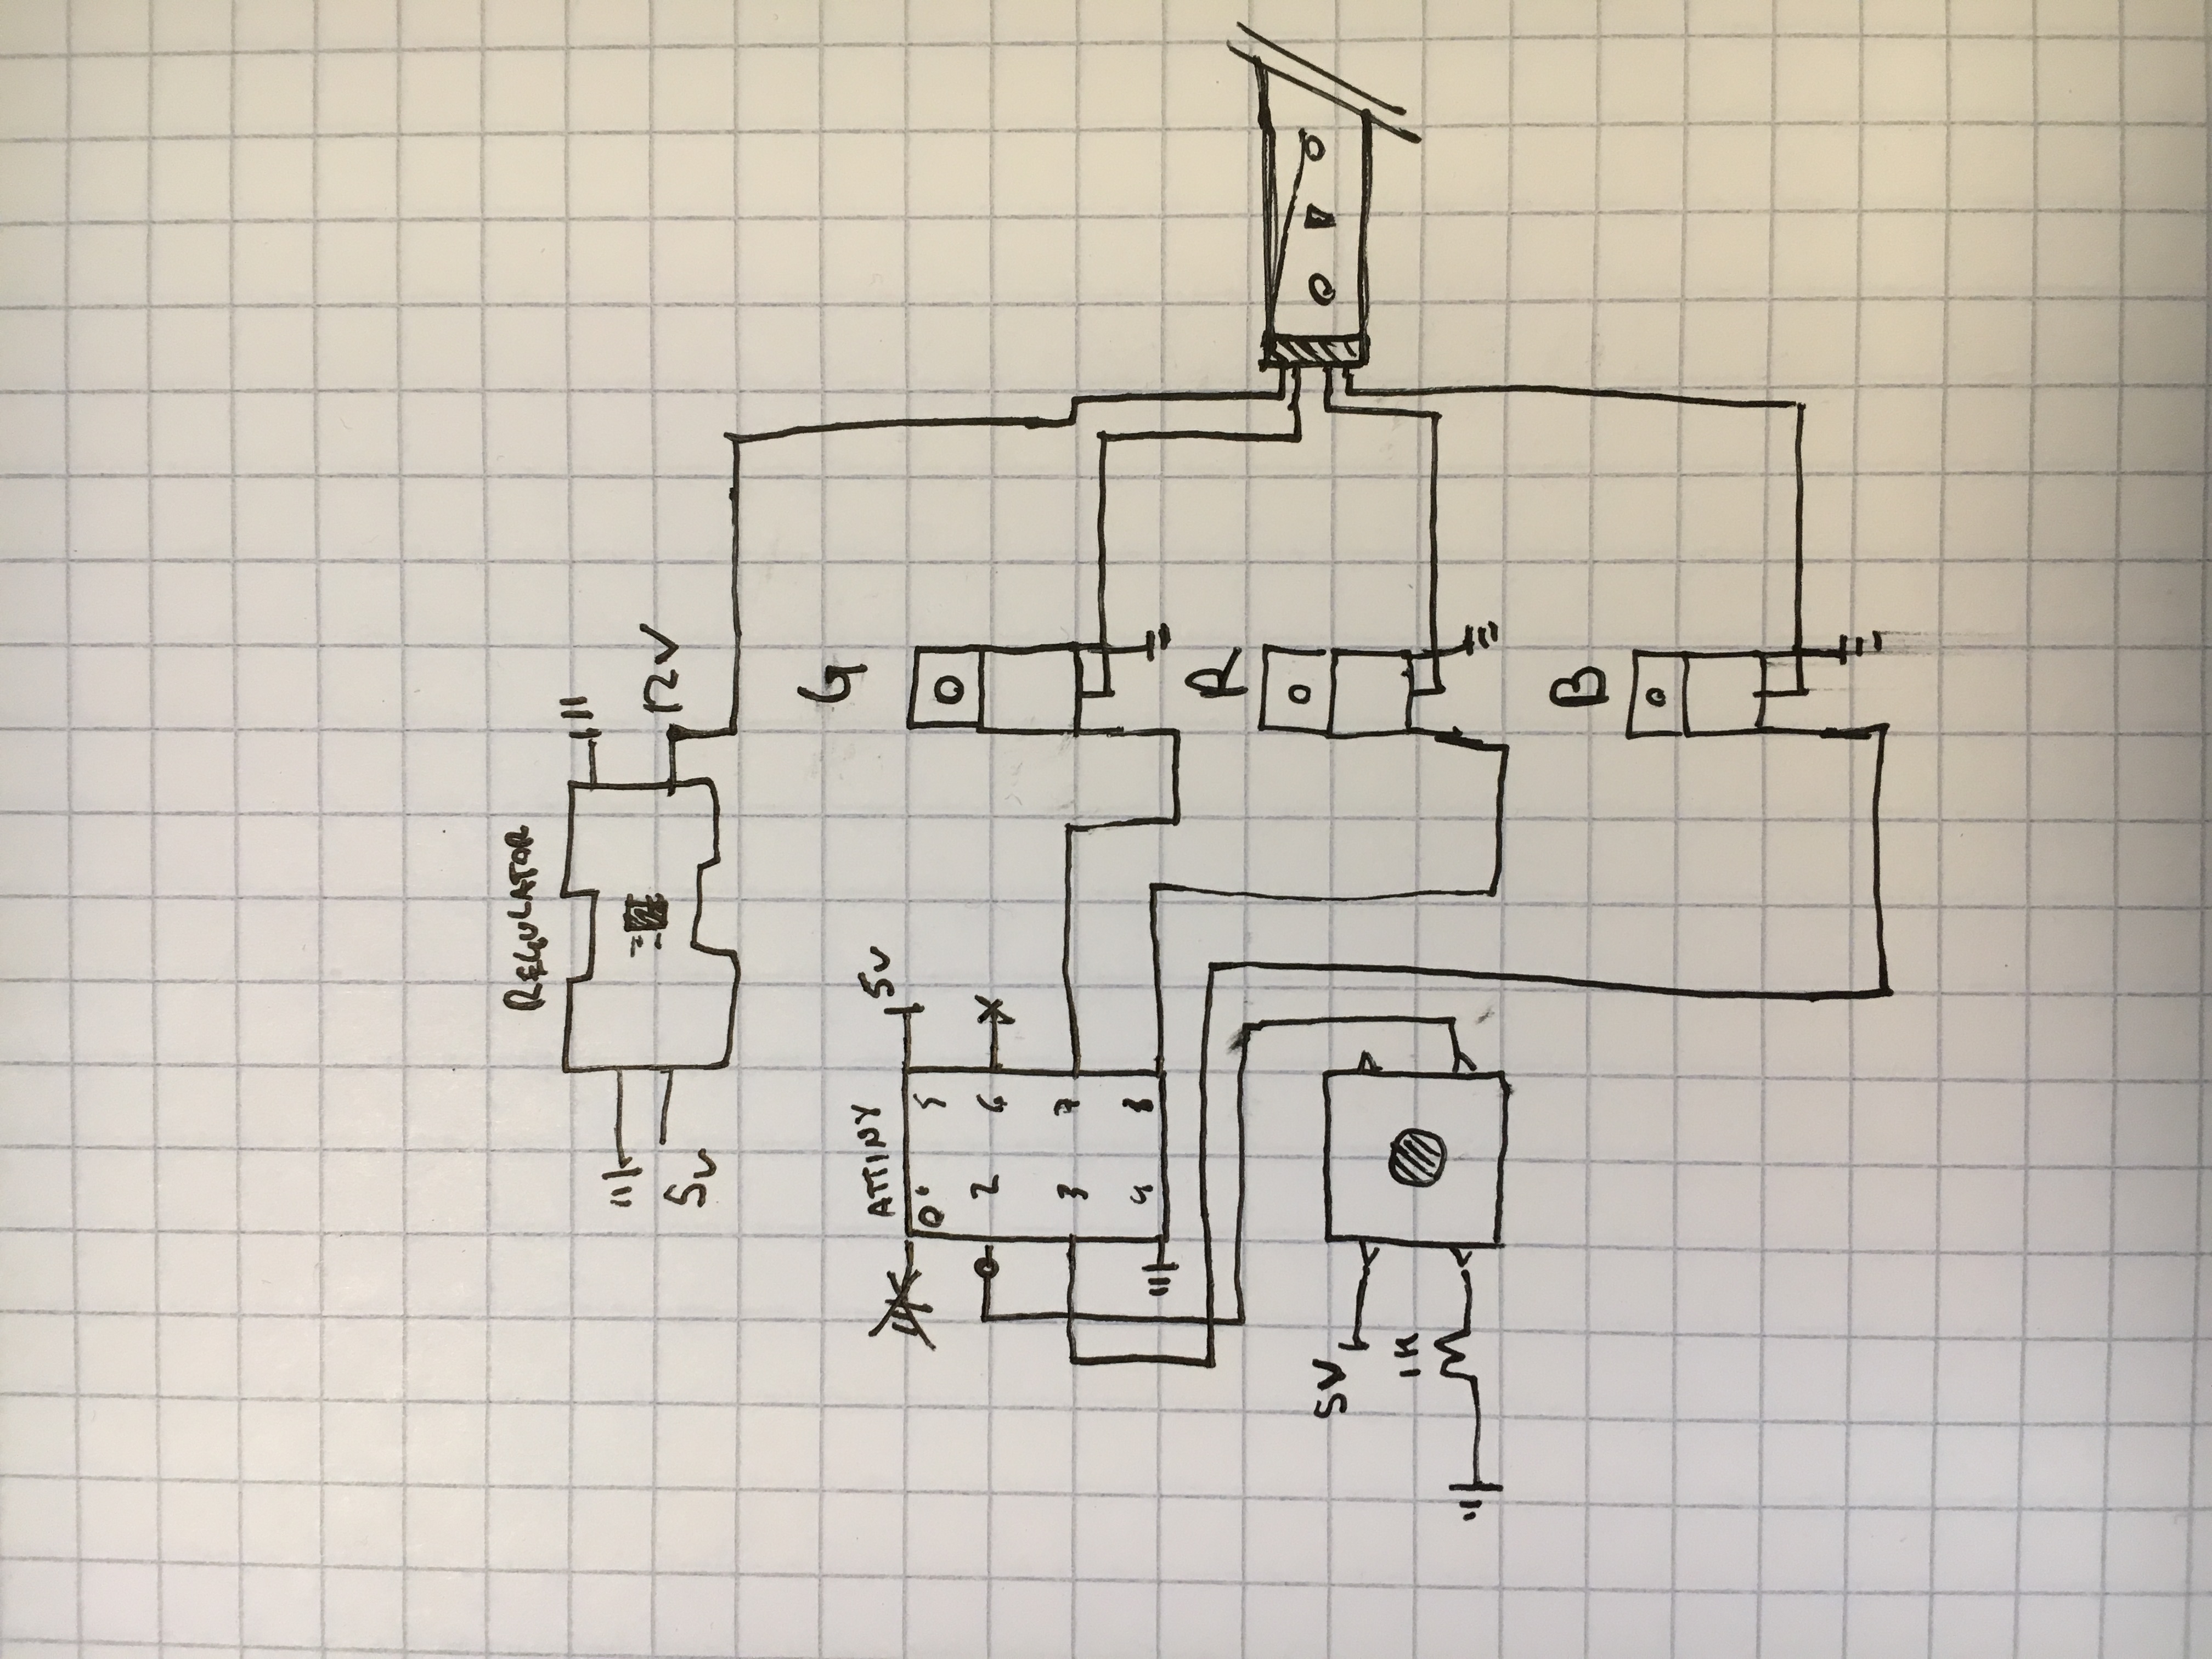 REGULATOR
5V
12V
G
ATTINY
5V
1 5
2 6
3 7
4 8
R
5V
1K
B